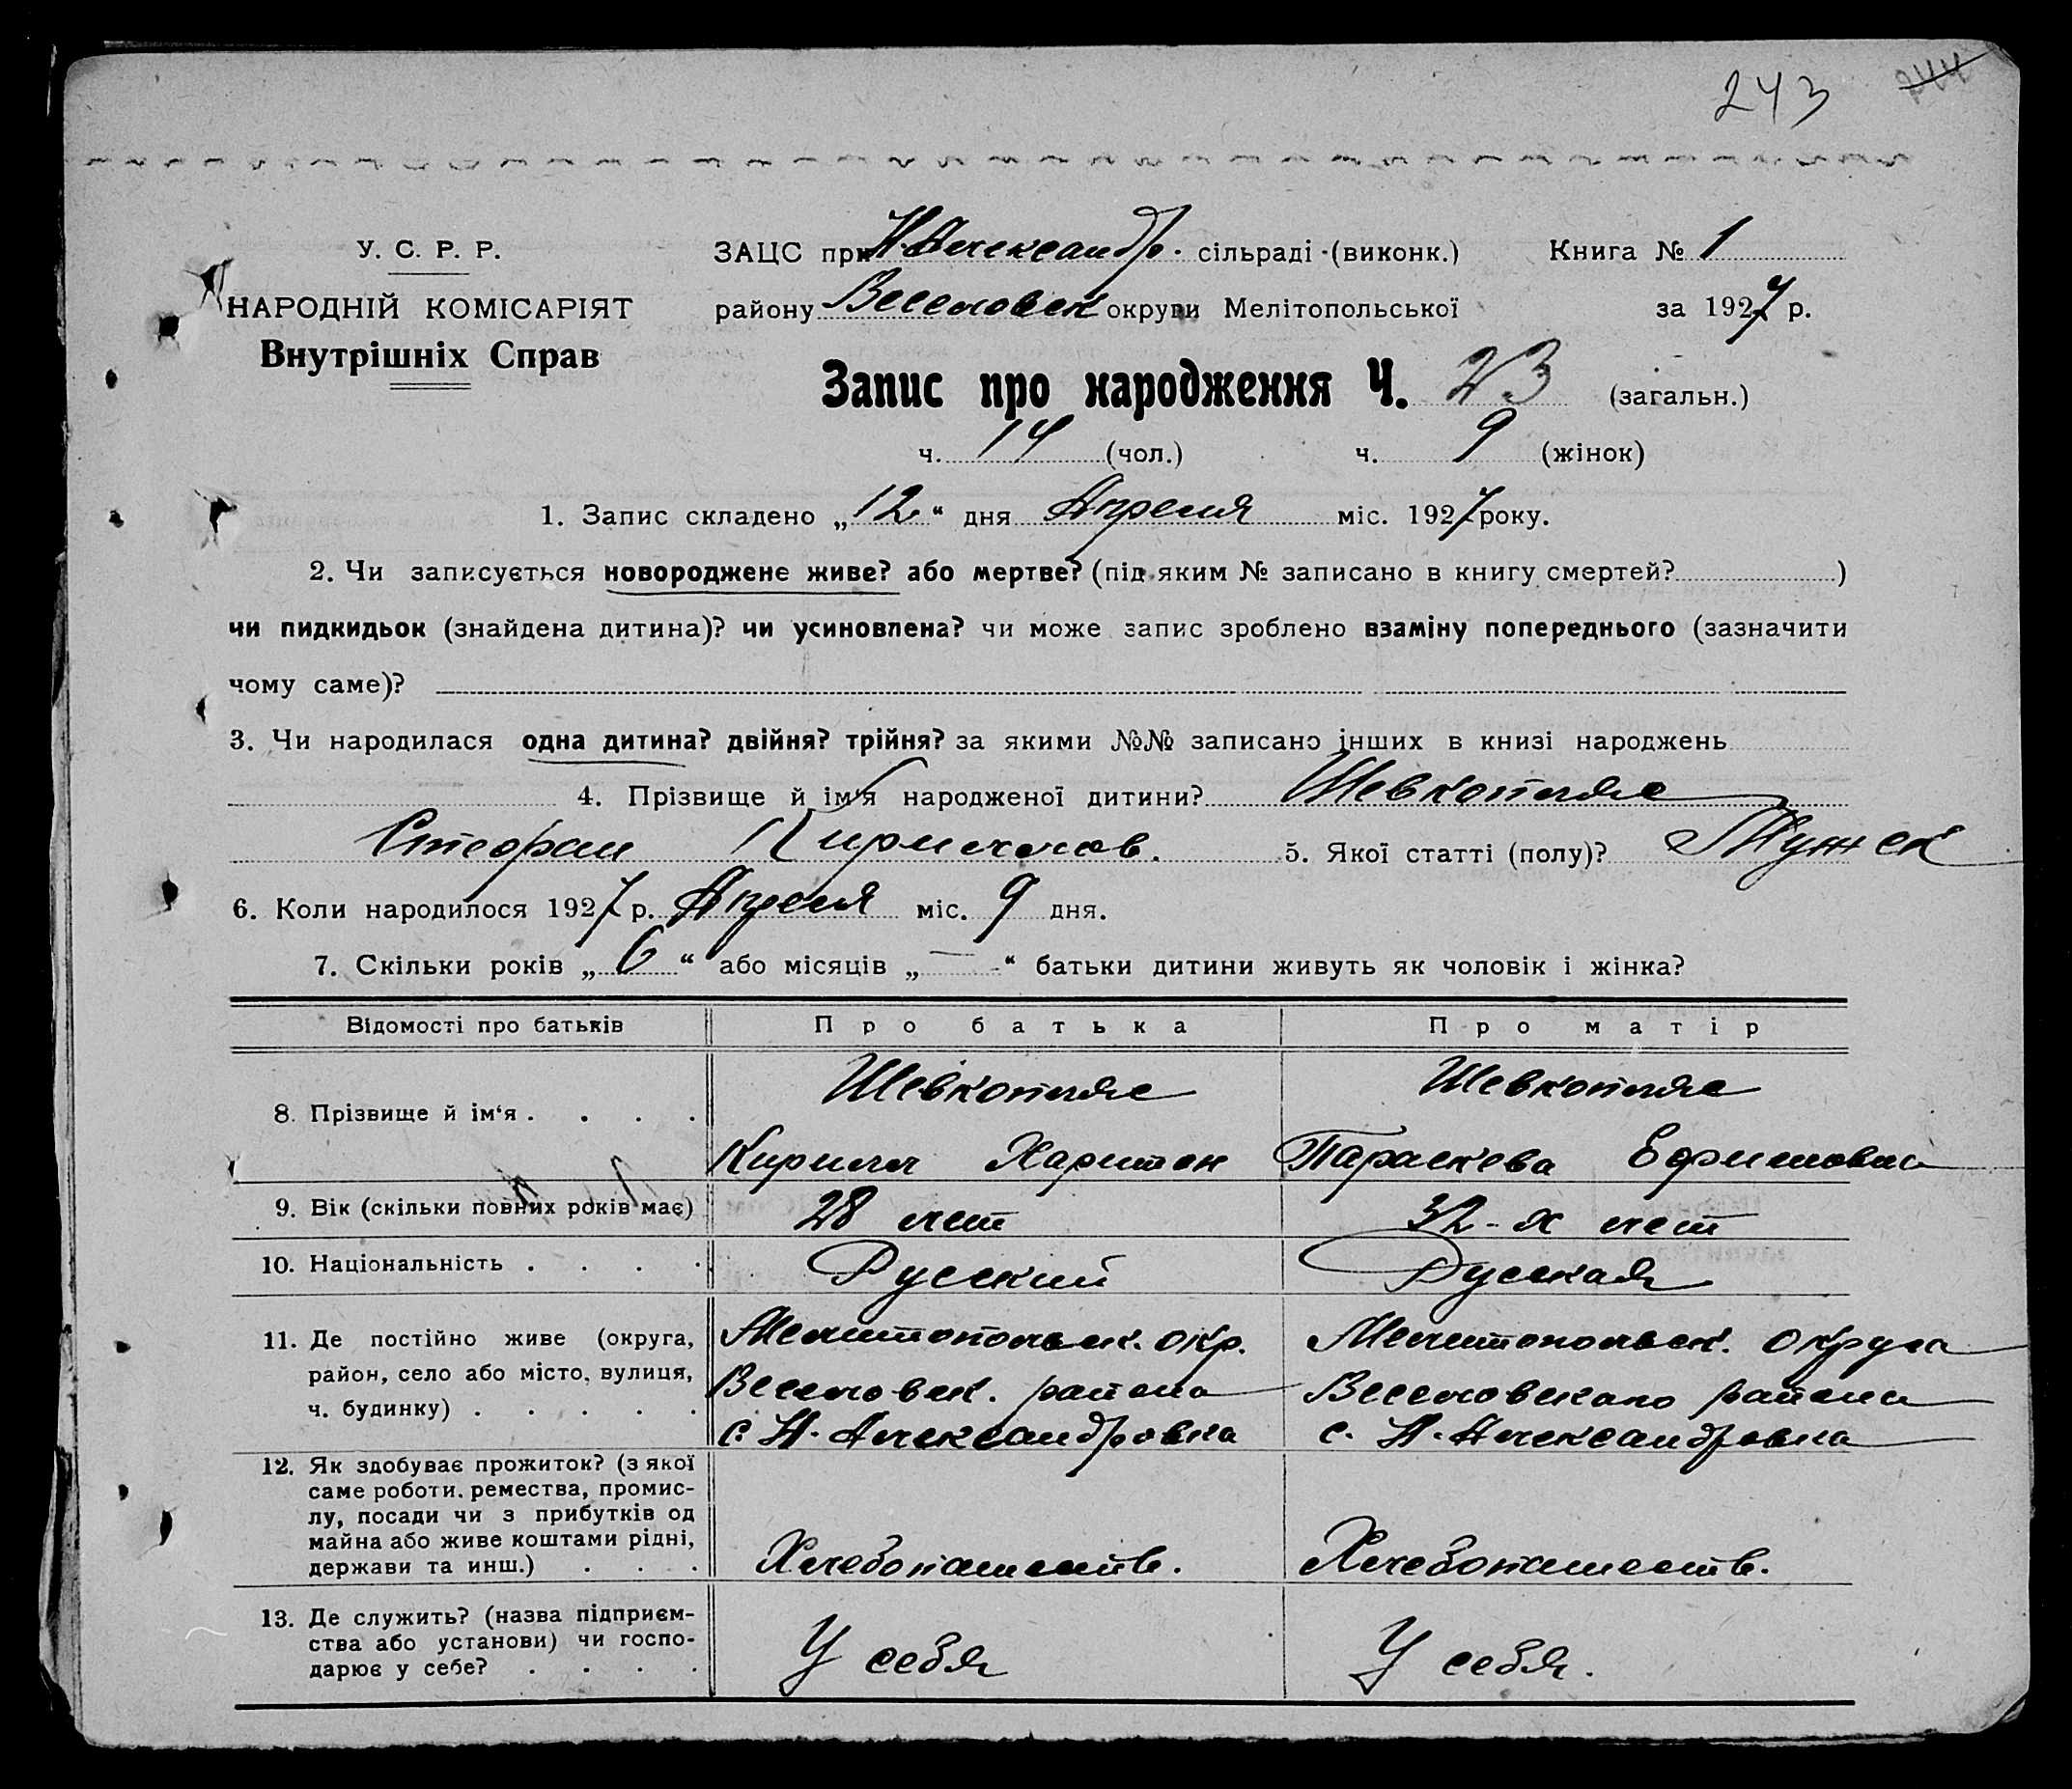 243
У. С. Р. Р.
НАРОДНІЙ КОМІСАРІЯТ
Внутрішніх Справ
ЗАЦС при Н-Александр. сільраді (виконк.) Книга № 1
району Веселовск округи Мелітопольської за 1927 р.
Запис про народження Ч. 23 (загальн.)
ч. 14 (чол.) ч. 9 (жінок)
1. Запис складено „12“ дня Апреля міс. 1927 року.
2. Чи записується новороджене живе? або мертве? (під яким № записано в книгу смертей? )
чи пидкидьок (знайдена дитина)? чи усиновлена? чи може запис зроблено взаміну попереднього (зазначити
чому саме)?
3. Чи народилася одна дитина? двійня? трійня? за якими №№ записано інших в книзі народжень
4. Прізвище й ім‘я народженої дитини? Шевкопляс
Стефан Кириллов. 5. Якої статті (полу)? Мужск
6. Коли народилося 1927 р. Апреля міс. 9 дня.
7. Скільки років „6“ або місяців „—“ батьки дитини живуть як чоловік і жінка?
Відомості про батьків Про батька Про матір
8. Прізвище й ім‘я . . . . Шевкопляс Шевкопляс
Кирилл Харитон Параскева Ефимовна
9. Вік (скільки повних років має) 28 лет 32-х лет
10. Національність . . . . Русский Русская
11. Де постійно живе (округа, Мелитопольск. окр. Мелитопольск. округа
район, село або місто, вулиця, Веселовск. района Веселовского района
ч. будинку) . . . . . с. Н-Александровка с. Н-Александровка
12. Як здобуває прожиток? (з якої
саме роботи, ремества, промис-
лу, посади чи з прибутків од
майна або живе коштами рідні,
держави та инш.) . . . Хлебопашеств. Хлебопашеств.
13. Де служить? (назва підприєм-
ства або установи) чи госпо-
дарює у себе? . . . . У себя У себя.